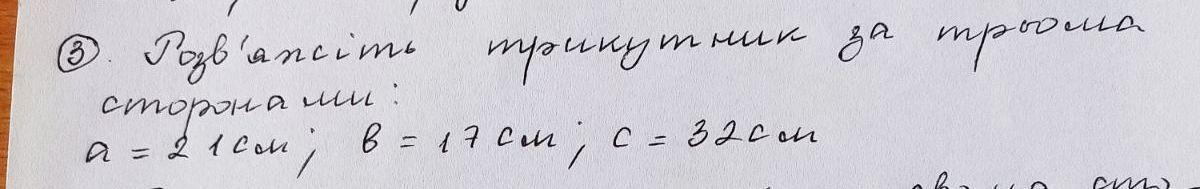 ③. Розв'яжіть трикутник за трьома
сторонами:
a = 21 см; в = 17 см; с = 32 см